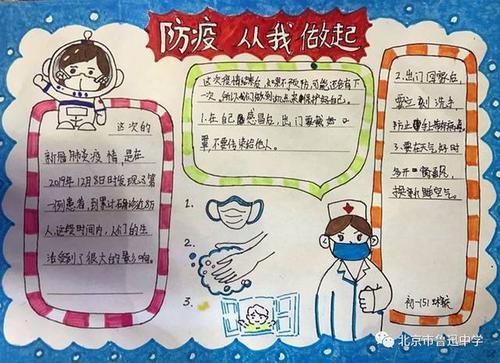 防疫 从我做起
这次的
新冠肺炎疫情,是在
2019年12月8日时发现了第
一例患者,到累计确诊近8万
人,这段时间内,人们的生
活受到了很大的影响。
这次疫情结束后,如果不预防,可能还会有下
一次,所以我们做到以点来保护好自己。
1.在自己感冒后,出门要戴口
罩,不要传染给他人。
1.
2.
3.
2.出门回家后,
要立刻洗手,
防止
3.要在天气好时
多开窗通風,
换新鲜空气。
初一151
北京市鲁迅中学